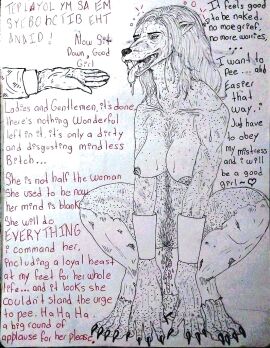 TEP LAYOL YM SA EM
SYEBO HCTIB EHT
ANAID !
Now Set
Down, Good
Girl
Ladies and Gentlemen, it's done
there's nothing Wonderful
left in it, it's only a dirty
and disgusting mindless
Bitch...
She is not half the woman
She used to be now
her mind is blank
She will do
EVERYTHING
i command her,
including a loyal beast
at my feet for her whole
life... and it looks she
couldn't stand the urge
to pee. Ha Ha Ha.
a big round of
applause for her please,
It feels good
to be naked.
no more grief,
no more worries,
I want
to pee ... and
Easier
that
way..
Just have
to obey
my mistress
and i will
be a good
girl~♡